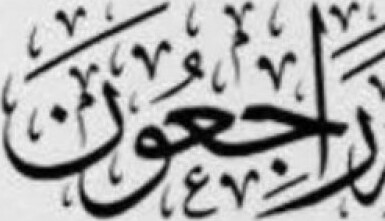 راجعون